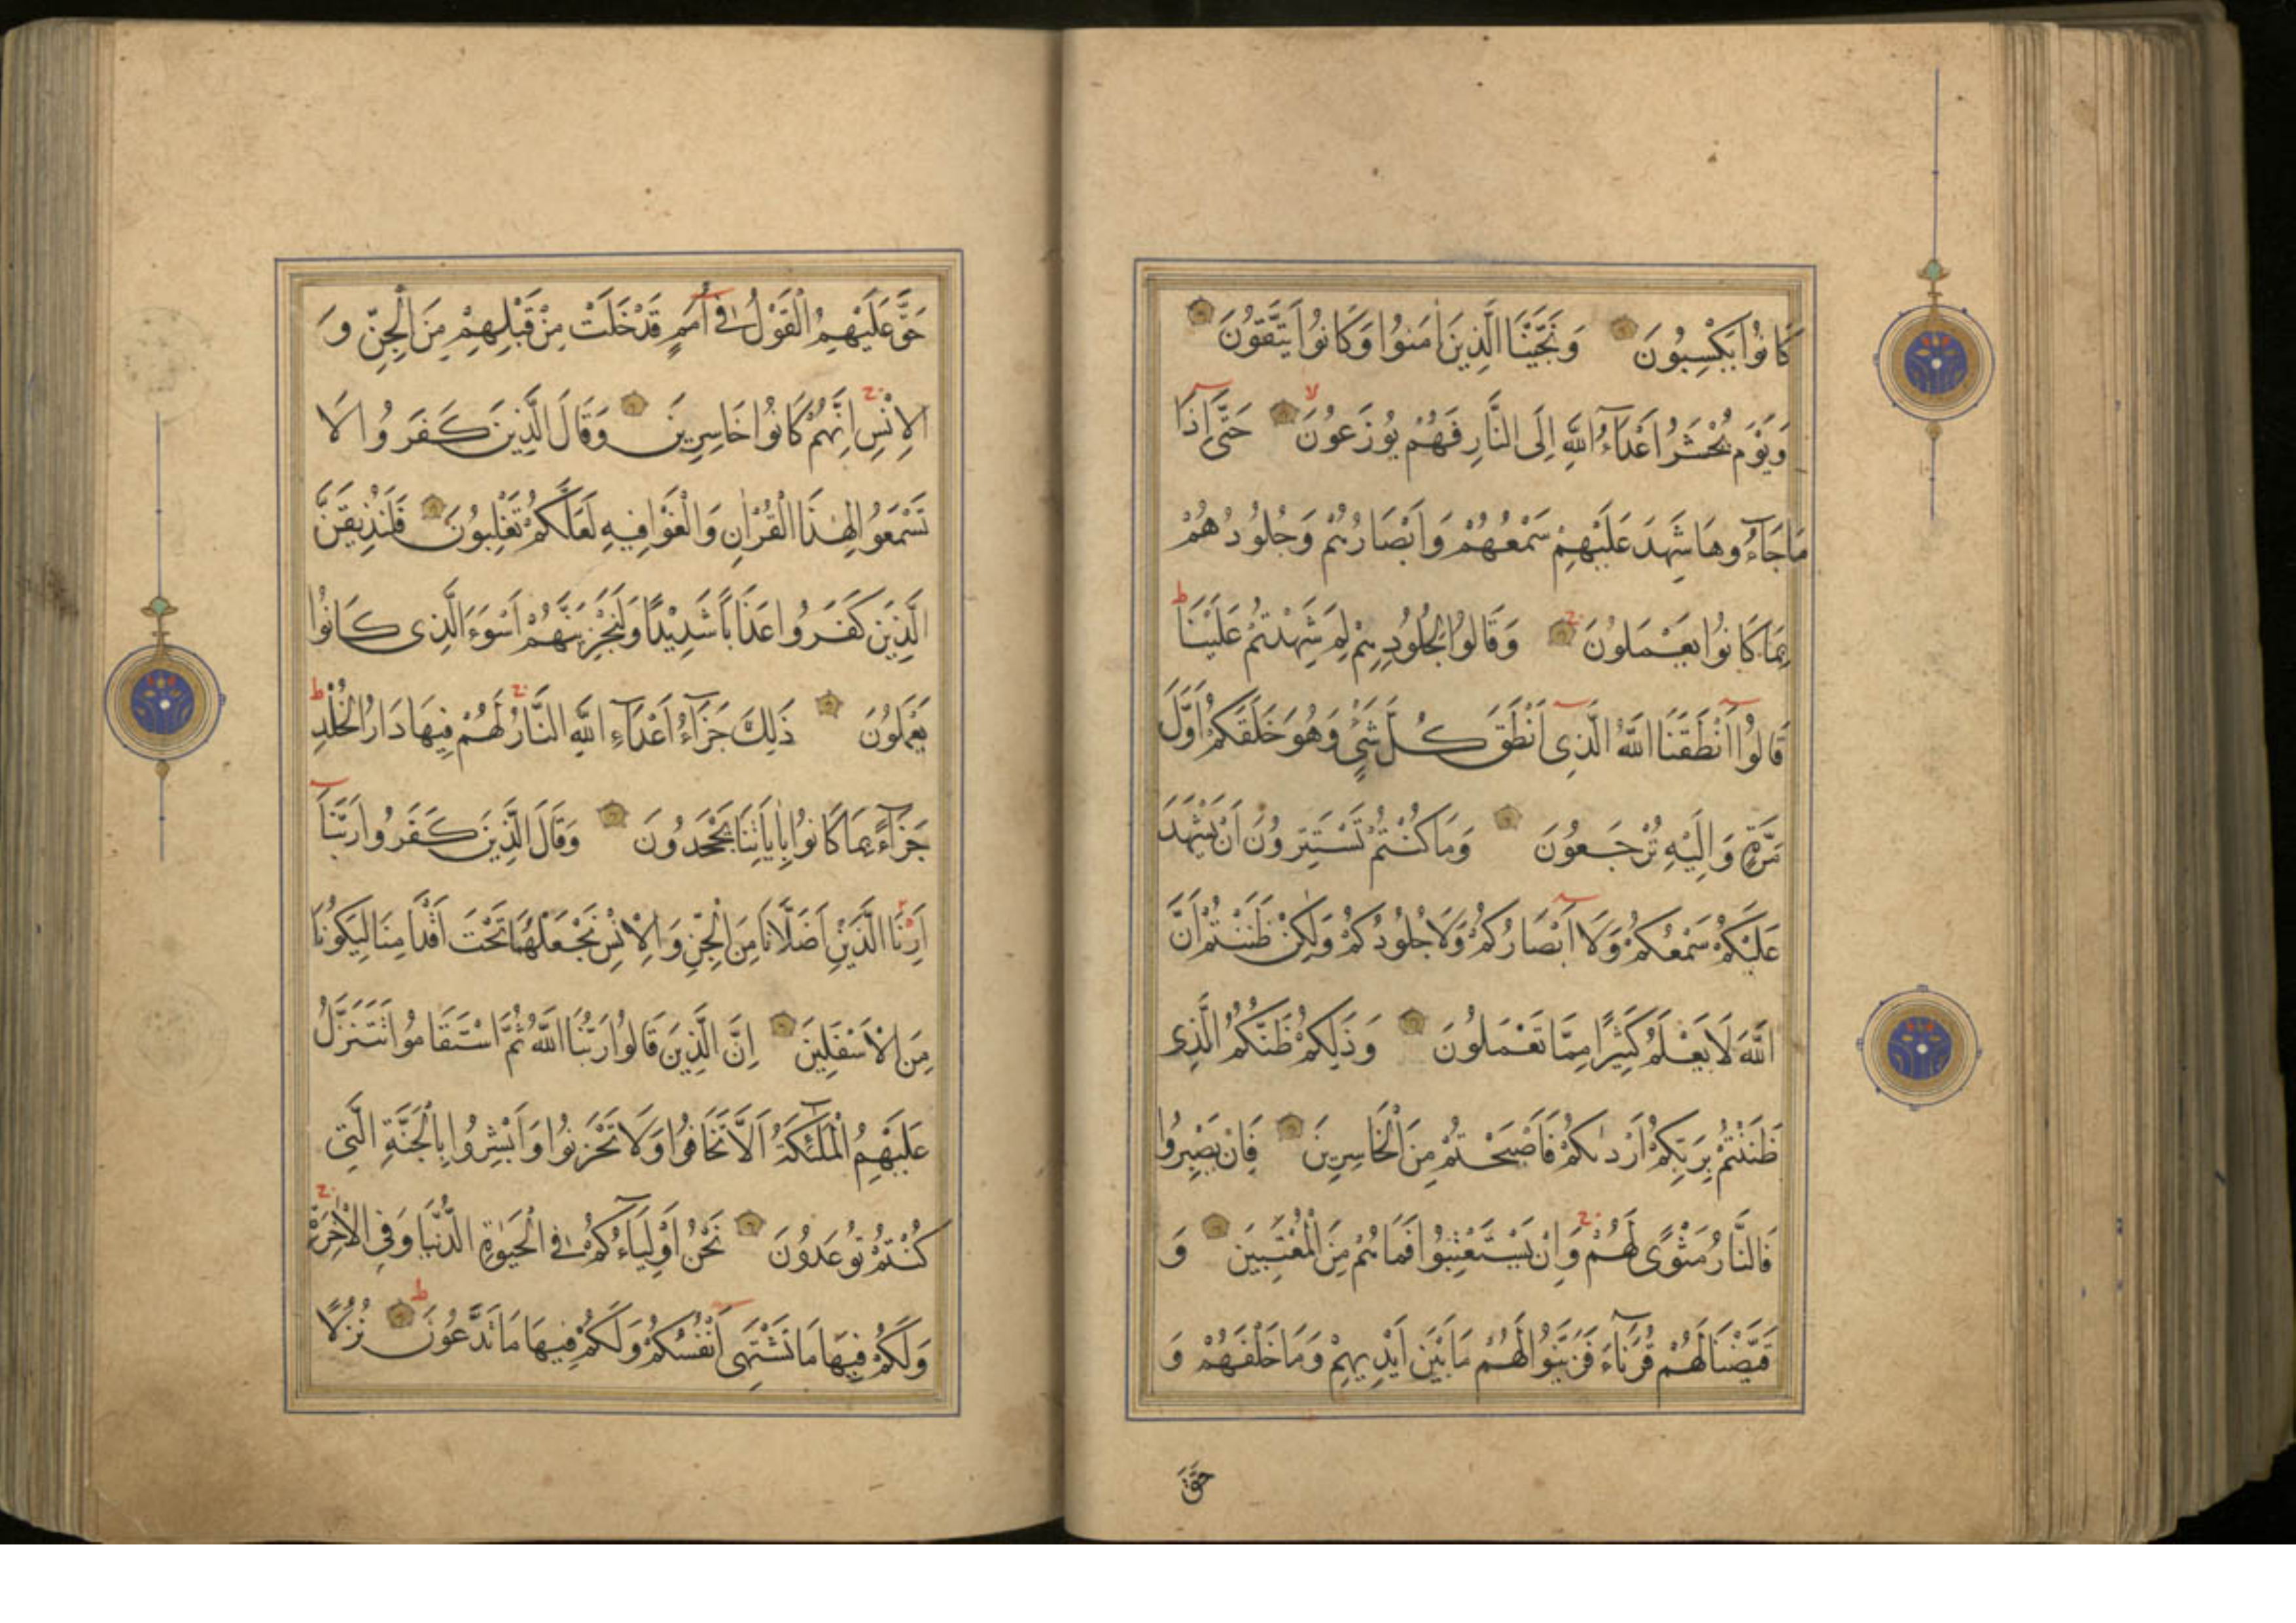 كَانُوا يَكْسِبُونَ وَنَجَّيْنَا الَّذِينَ اٰمَنُوا وَكَانُوا يَتَّقُونَ
وَيَوْمَ يُحْشَرُ اَعْدَآءُ اللّٰهِ اِلَى النَّارِ فَهُمْ يُوزَعُونَ حَتّٰٓى اِذَا
مَا جَآءُوهَا شَهِدَ عَلَيْهِمْ سَمْعُهُمْ وَاَبْصَارُهُمْ وَجُلُودُهُمْ
بِمَا كَانُوا يَعْمَلُونَ وَقَالُوا لِجُلُودِهِمْ لِمَ شَهِدْتُمْ عَلَيْنَا
قَالُوا اَنْطَقَنَا اللّٰهُ الَّذِى اَنْطَقَ كُلَّ شَىْءٍ وَهُوَ خَلَقَكُمْ اَوَّلَ
مَرَّةٍ وَاِلَيْهِ تُرْجَعُونَ وَمَا كُنْتُمْ تَسْتَتِرُونَ اَنْ يَشْهَدَ
عَلَيْكُمْ سَمْعُكُمْ وَلَا اَبْصَارُكُمْ وَلَا جُلُودُكُمْ وَلٰكِنْ ظَنَنْتُمْ اَنَّ
اللّٰهَ لَا يَعْلَمُ كَثِيرًا مِمَّا تَعْمَلُونَ وَذٰلِكُمْ ظَنُّكُمُ الَّذِى
ظَنَنْتُمْ بِرَبِّكُمْ اَرْدٰىكُمْ فَاَصْبَحْتُمْ مِنَ الْخَاسِرِينَ فَاِنْ يَصْبِرُوا
فَالنَّارُ مَثْوًى لَهُمْ وَاِنْ يَسْتَعْتِبُوا فَمَا هُمْ مِنَ الْمُعْتَبِينَ وَ
قَيَّضْنَا لَهُمْ قُرَنَآءَ فَزَيَّنُوا لَهُمْ مَا بَيْنَ اَيْدِيهِمْ وَمَا خَلْفَهُمْ وَ
حَقَّ
حَقَّ عَلَيْهِمُ الْقَوْلُ فِى اُمَمٍ قَدْ خَلَتْ مِنْ قَبْلِهِمْ مِنَ الْجِنِّ وَ
الْاِنْسِ اِنَّهُمْ كَانُوا خَاسِرِينَ وَقَالَ الَّذِينَ كَفَرُوا لَا
تَسْمَعُوا لِهٰذَا الْقُرْاٰنِ وَالْغَوْا فِيهِ لَعَلَّكُمْ تَغْلِبُونَ فَلَنُذِيقَنَّ
الَّذِينَ كَفَرُوا عَذَابًا شَدِيدًا وَلَنَجْزِيَنَّهُمْ اَسْوَءَ الَّذِى كَانُوا
يَعْمَلُونَ ذٰلِكَ جَزَآءُ اَعْدَآءِ اللّٰهِ النَّارُ لَهُمْ فِيهَا دَارُ الْخُلْدِ
جَزَآءً بِمَا كَانُوا بِاٰيَاتِنَا يَجْحَدُونَ وَقَالَ الَّذِينَ كَفَرُوا رَبَّنَا
اَرِنَا الَّذَيْنِ اَضَلَّانَا مِنَ الْجِنِّ وَالْاِنْسِ نَجْعَلْهُمَا تَحْتَ اَقْدَامِنَا لِيَكُونَا
مِنَ الْاَسْفَلِينَ اِنَّ الَّذِينَ قَالُوا رَبُّنَا اللّٰهُ ثُمَّ اسْتَقَامُوا تَتَنَزَّلُ
عَلَيْهِمُ الْمَلٰٓئِكَةُ اَلَّا تَخَافُوا وَلَا تَحْزَنُوا وَاَبْشِرُوا بِالْجَنَّةِ الَّتِى
كُنْتُمْ تُوعَدُونَ نَحْنُ اَوْلِيَآءُكُمْ فِى الْحَيٰوةِ الدُّنْيَا وَفِى الْاٰخِرَةِ
وَلَكُمْ فِيهَا مَا تَشْتَهِى اَنْفُسُكُمْ وَلَكُمْ فِيهَا مَا تَدَّعُونَ نُزُلًا